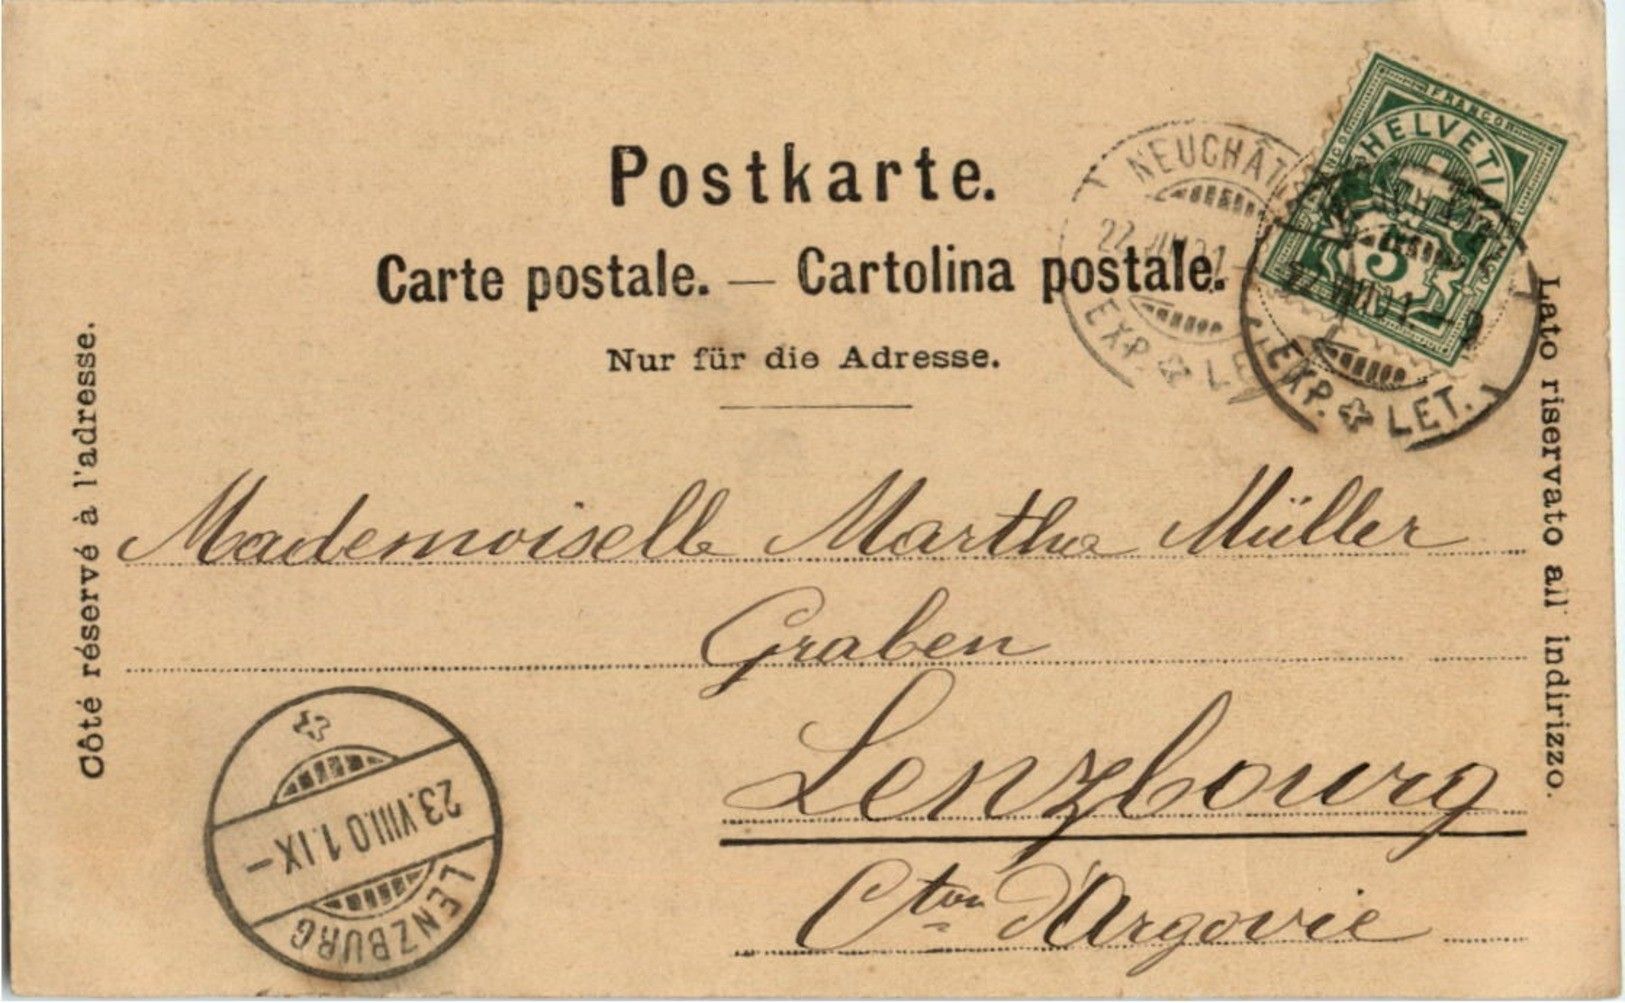 Postkarte.
Carte postale. — Cartolina postale.
Nur für die Adresse.
Côté réservé à l'adresse.
Lato riservato all' indirizzo.
FRANCO
HELVETIA
5
NEUCHÂT
22.VIII.01
EXP. LET.
22.VIII.01.–9
EXP. LET.
Mademoiselle Martha Müller
Graben
Lenzbourg
Cton d'Argovie
23.VIII.01.IX–
LENZBURG